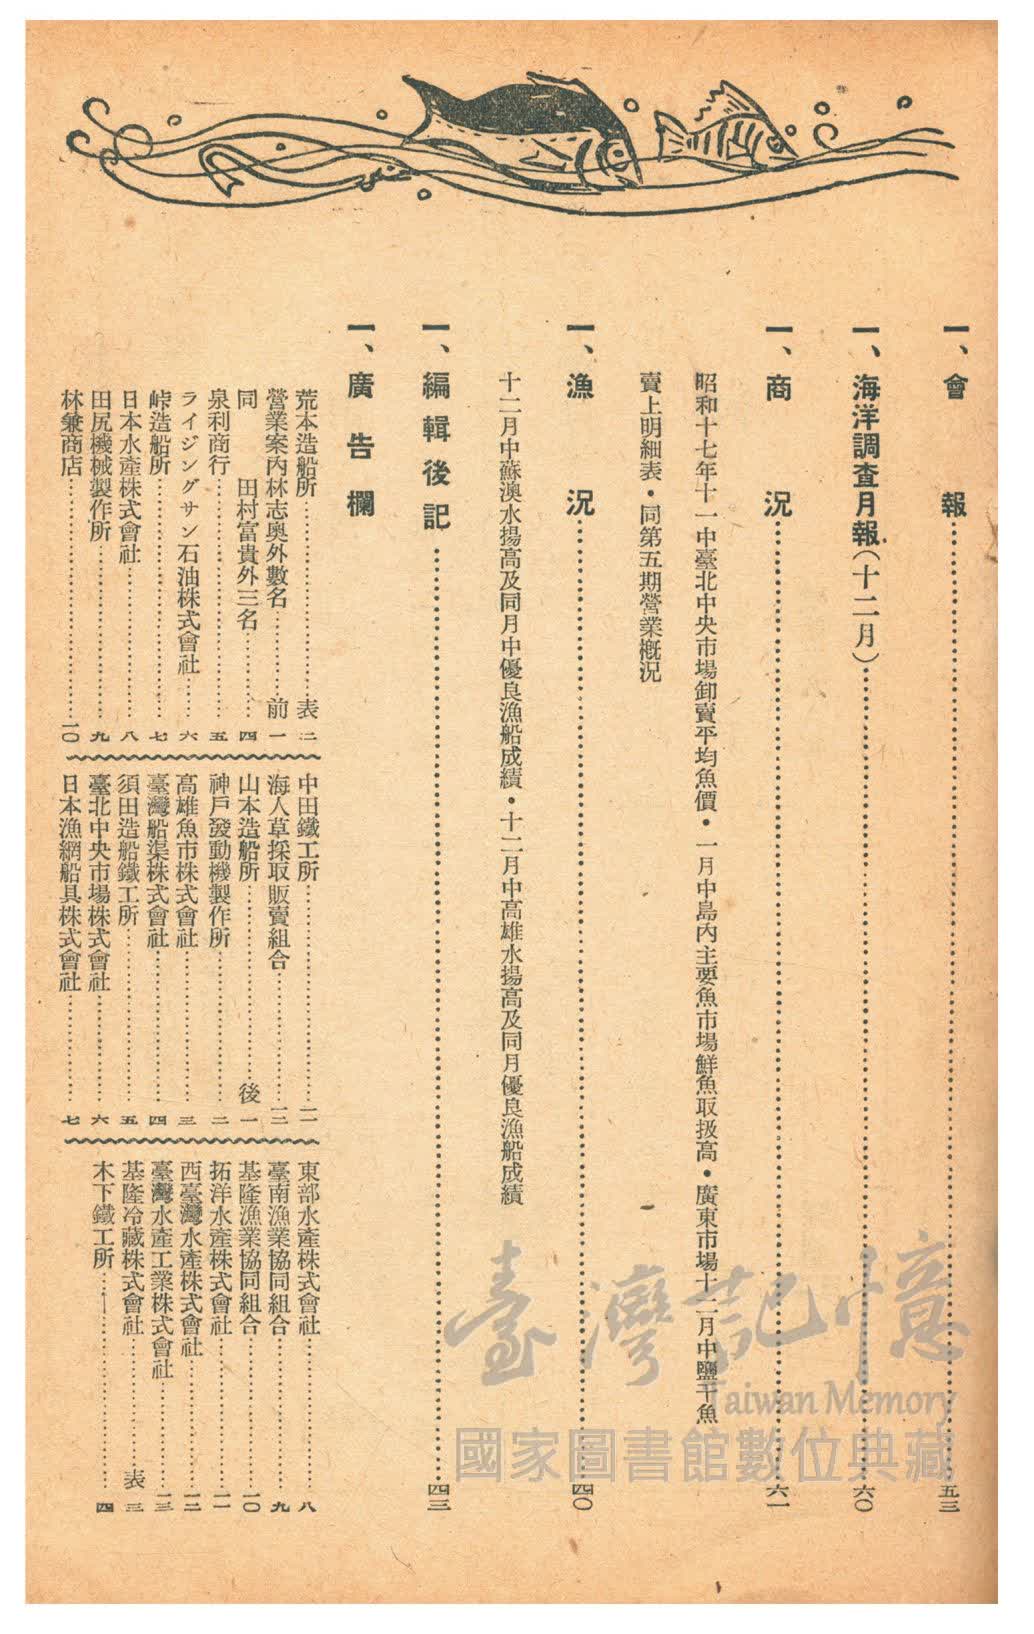 一、會報……五三
一、海洋調查月報(十二月)……六〇
一、商況……六一
昭和十七年十一中臺北中央市場卸賣平均魚價・一月中島內主要魚市場鮮魚取扱高・廣東市場十二月中鹽干魚
賣上明細表・同第五期營業槪況
一、漁況……四〇
十二月中蘇澳水揚高及同月中優良漁船成績・十二月中高雄水揚高及同月優良漁船成績
一、編輯後記……四三
一、廣告欄
荒本造船所……表二
營業案內林志奧外數名……前一
同 田村富貴外三名……四
泉利商行……五
ライジングサン石油株式會社……六
峠造船所……七
日本水產株式會社……八
田尻機械製作所……九
林兼商店……一〇
中田鐵工所……一一
海人草採取販賣組合……一二
山本造船所……後一
神戶發動機製作所……二
高雄魚市株式會社……三
臺灣船渠株式會社……四
須田造船鐵工所……五
臺北中央市場株式會社……六
日本漁網船具株式會社……七
東部水產株式會社……八
臺南漁業協同組合……九
基隆漁業協同組合……一〇
拓洋水產株式會社……一一
西臺灣水產株式會社……一二
臺灣水產工業株式會社……一三
基隆冷藏株式會社……表三
木下鐵工所……四
臺灣記憶
Taiwan Memory
國家圖書館數位典藏